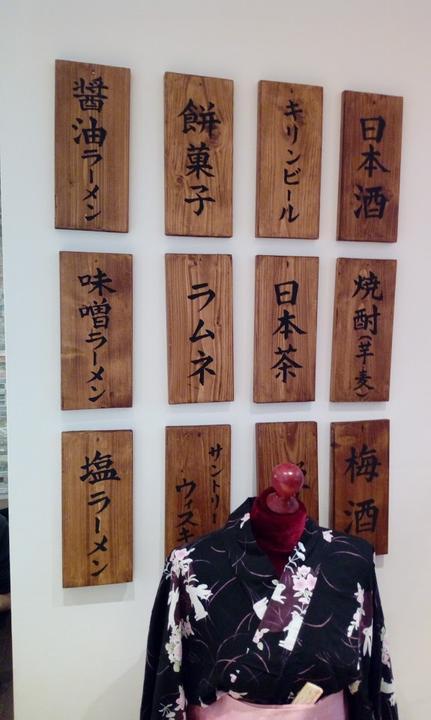 日本酒
キリンビール
餅菓子
醤油ラーメン
焼酎(芋・麦)
日本茶
ラムネ
味噌ラーメン
梅酒
サントリー
ウィスキ
塩ラーメン